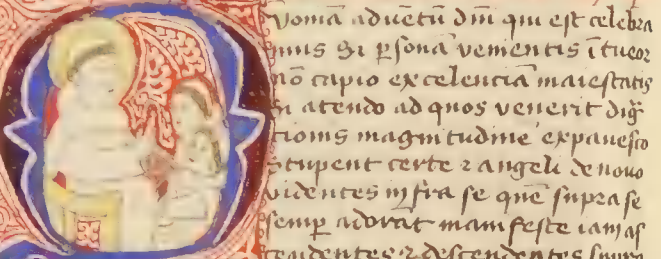 uoniā aduētū dn̄i qui est celebra
mus Si p̱sonā uenientis ītueor
nō capio excelenciā maiestatis
Si atendo ad quos venerit dig̃
tionis magnitudinē expauesco
Stupent certe ⁊ angeli de nouo
uidentes infra se quē supra se
semp̱ adorāt manifeste iam as
cendentes ⁊ descendentes supra